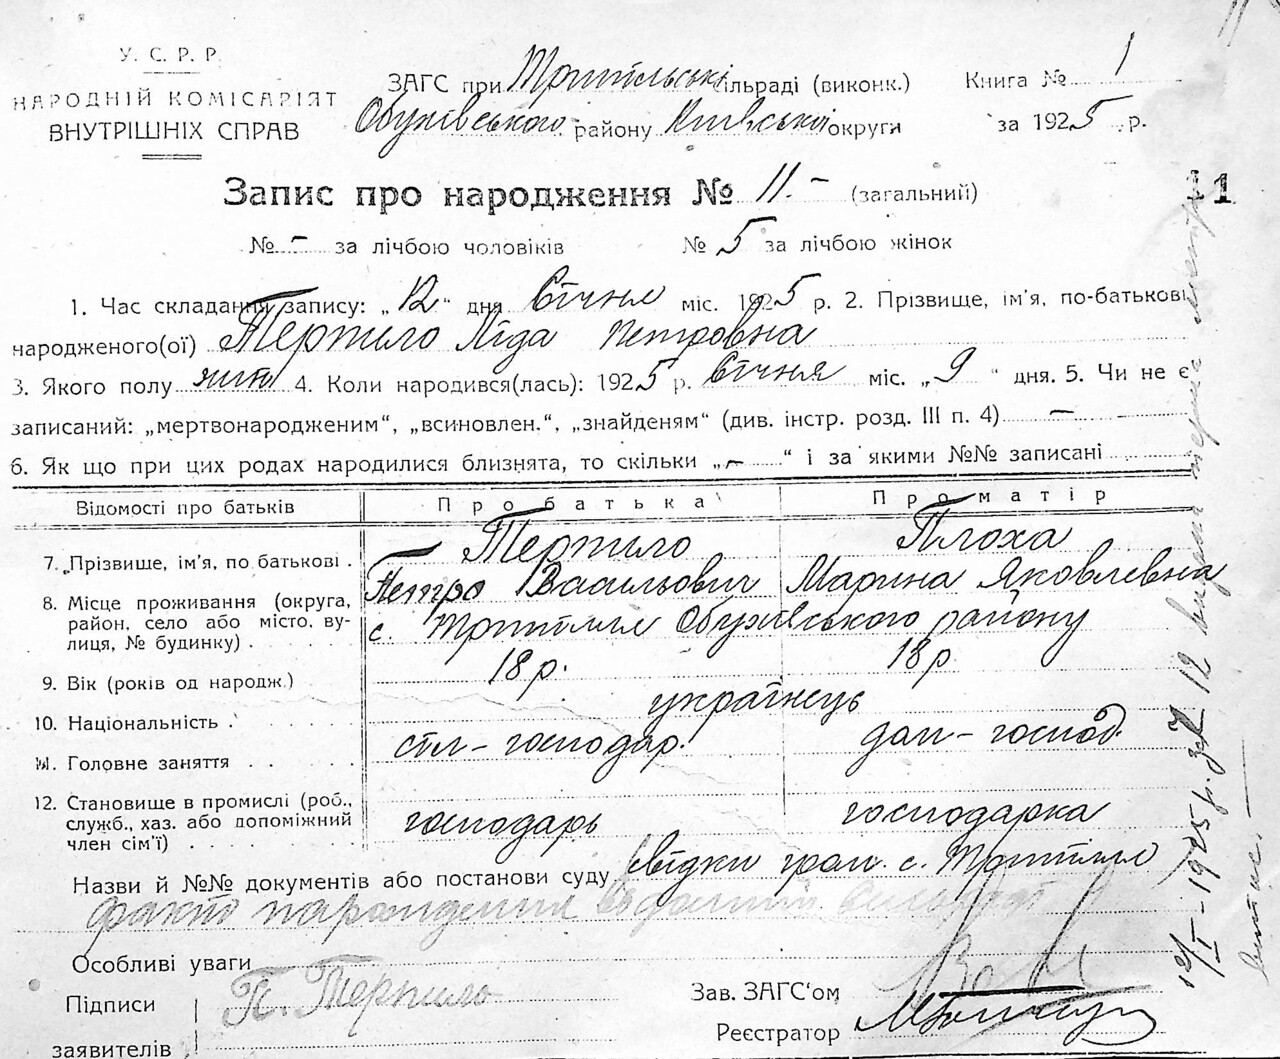 У. С. Р. Р.
НАРОДНІЙ КОМІСАРІЯТ
ВНУТРІШНІХ СПРАВ
ЗАГС при Трипільські сільраді (виконк.)
Обухівського району Київської округи
Книга № 1
за 1925 р.
Запис про народження № 11. – (загальний)
11
№ – за лічбою чоловіків № 5 за лічбою жінок
1. Час складання запису: „12“ дня Січня міс. 1925 р. 2. Прізвище, ім'я, по-батькові
народженого(ої) Терпило Ліда Петровна
3. Якого полу жін 4. Коли народився(лась): 1925 р. Січня міс. „9“ дня. 5. Чи не є
записаний: „мертвонародженим“, „всиновлен.“, „знайденям“ (див. інстр. розд. III п. 4) –
6. Як що при цих родах народилися близнята, то скільки „–“ і за якими №№ записані
Відомості про батьків Про батька Про матір
7. Прізвище, ім'я, по батькові .
Терпило Плоха
Петро Васильович Марина Яковлевна
8. Місце проживання (округа,
район, село або місто, ву-
лиця, № будинку) .
с. Трипілля Обухівського району
9. Вік (років од народж.) 18 р. 18 р
10. Національність . українець
11. Головне заняття . . . сіл – господар. дом – господ.
12. Становище в промислі (роб.,
служб., хаз. або допоміжний
член сім'ї) . . . . .
господарь господарка
Назви й №№ документів або постанови суду свідки гром. с. Трипілля
факт народження
Особливі уваги
Підписи
заявителів
П. Терпило
Зав. ЗАГС'ом
Реєстратор
12/I – 1925 р. за № 12
витяг. –